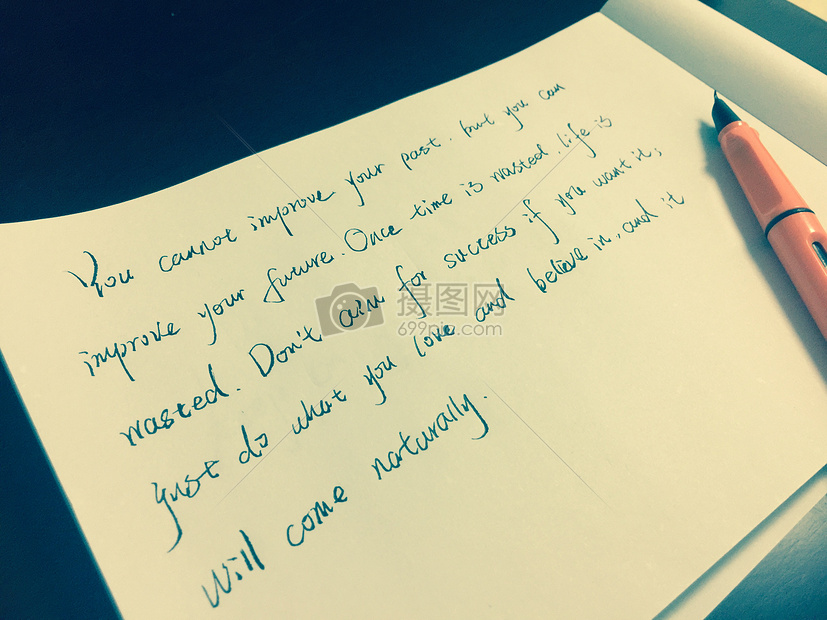 You cannot improve your past. but you can
improve your future. Once time is wasted. life is
wasted. Don't aim for success if you want it;
just do what you love and believe in, and it
will come naturally.
摄图网
699pic.com